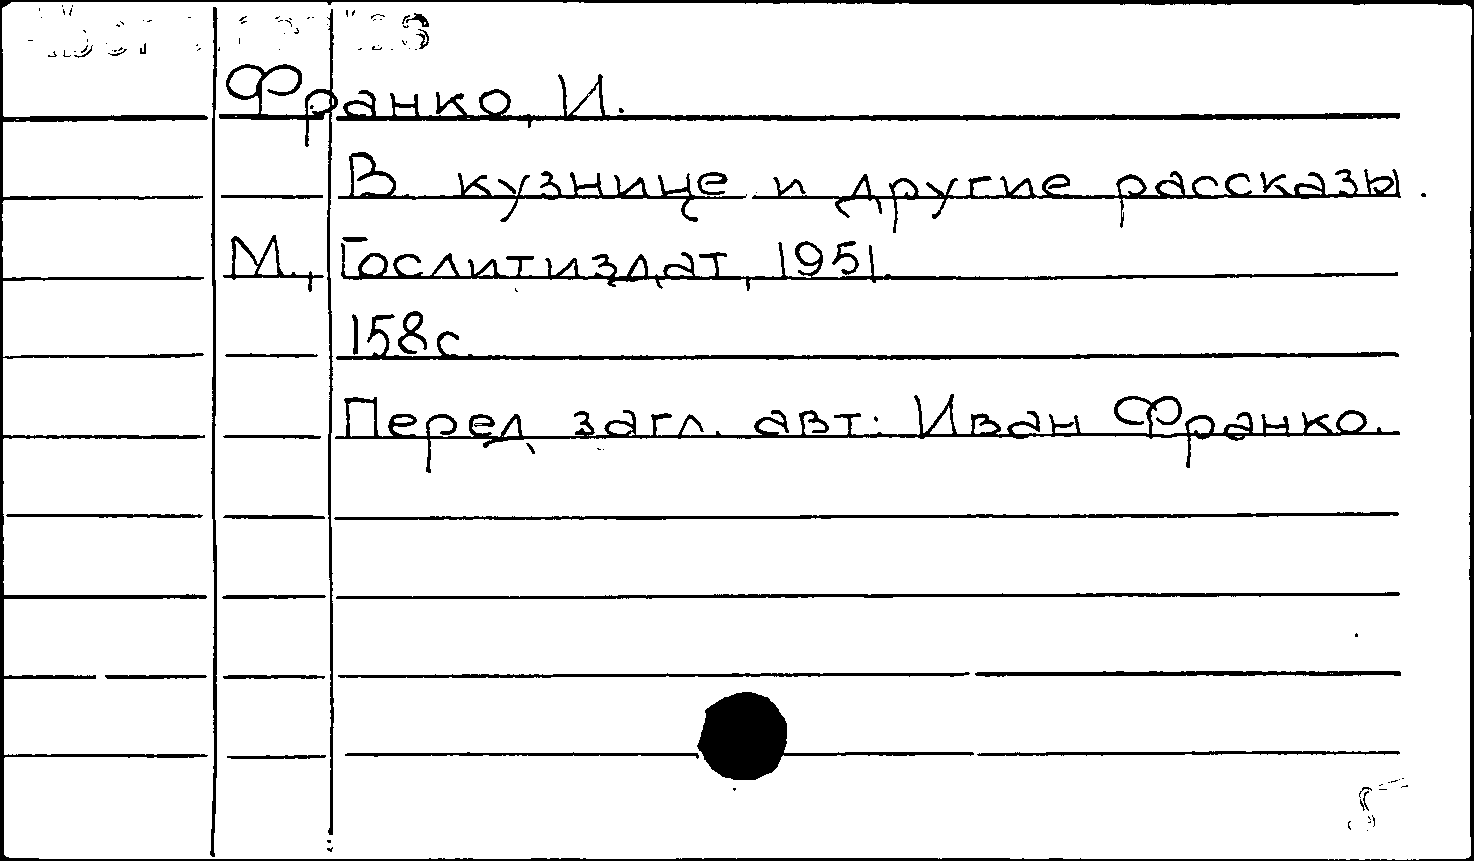 Франко, И.
В кузнице и другие рассказы.
М., Гослитиздат, 1951.
158с.
Перед загл. авт.: Иван Франко.